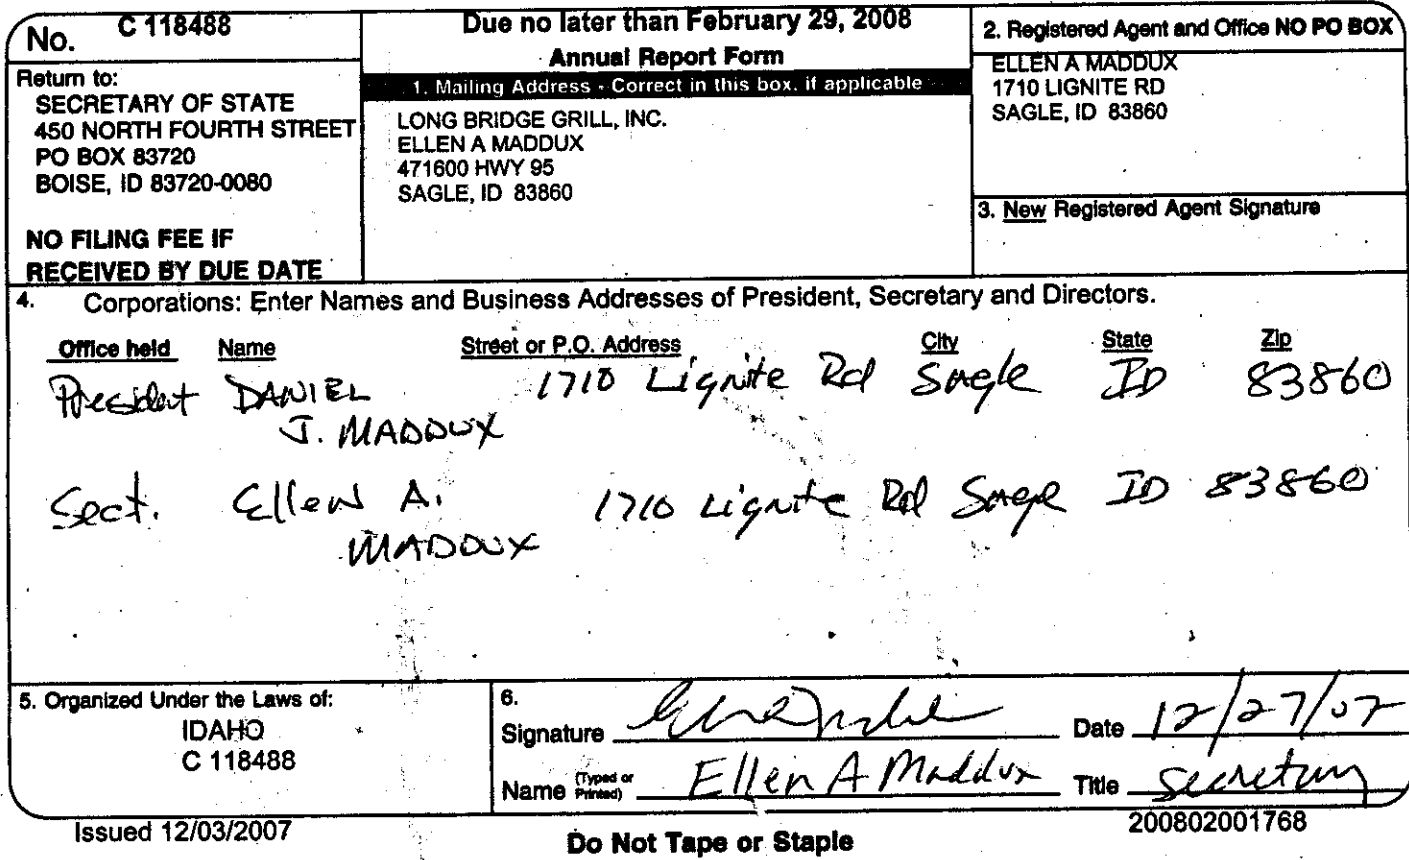 No. C 118488
Return to:
SECRETARY OF STATE
450 NORTH FOURTH STREET
PO BOX 83720
BOISE, ID 83720-0080
NO FILING FEE IF
RECEIVED BY DUE DATE
Due no later than February 29, 2008
Annual Report Form
1. Mailing Address - Correct in this box, if applicable
LONG BRIDGE GRILL, INC.
ELLEN A MADDUX
471600 HWY 95
SAGLE, ID 83860
2. Registered Agent and Office NO PO BOX
ELLEN A MADDUX
1710 LIGNITE RD
SAGLE, ID 83860
3. New Registered Agent Signature
4. Corporations: Enter Names and Business Addresses of President, Secretary and Directors.
Office held Name Street or P.O. Address City State Zip
President DANIEL 1710 Lignite Rd Sagle ID 83860
J. MADDUX
Sect. Ellen A. 1710 Lignite Rd Sagle ID 83860
MADDUX
5. Organized Under the Laws of:
IDAHO
C 118488
6.
Signature Date 12/27/07
Name (Typed or Printed) Ellen A Maddux Title Secretary
Issued 12/03/2007
Do Not Tape or Staple
200802001768